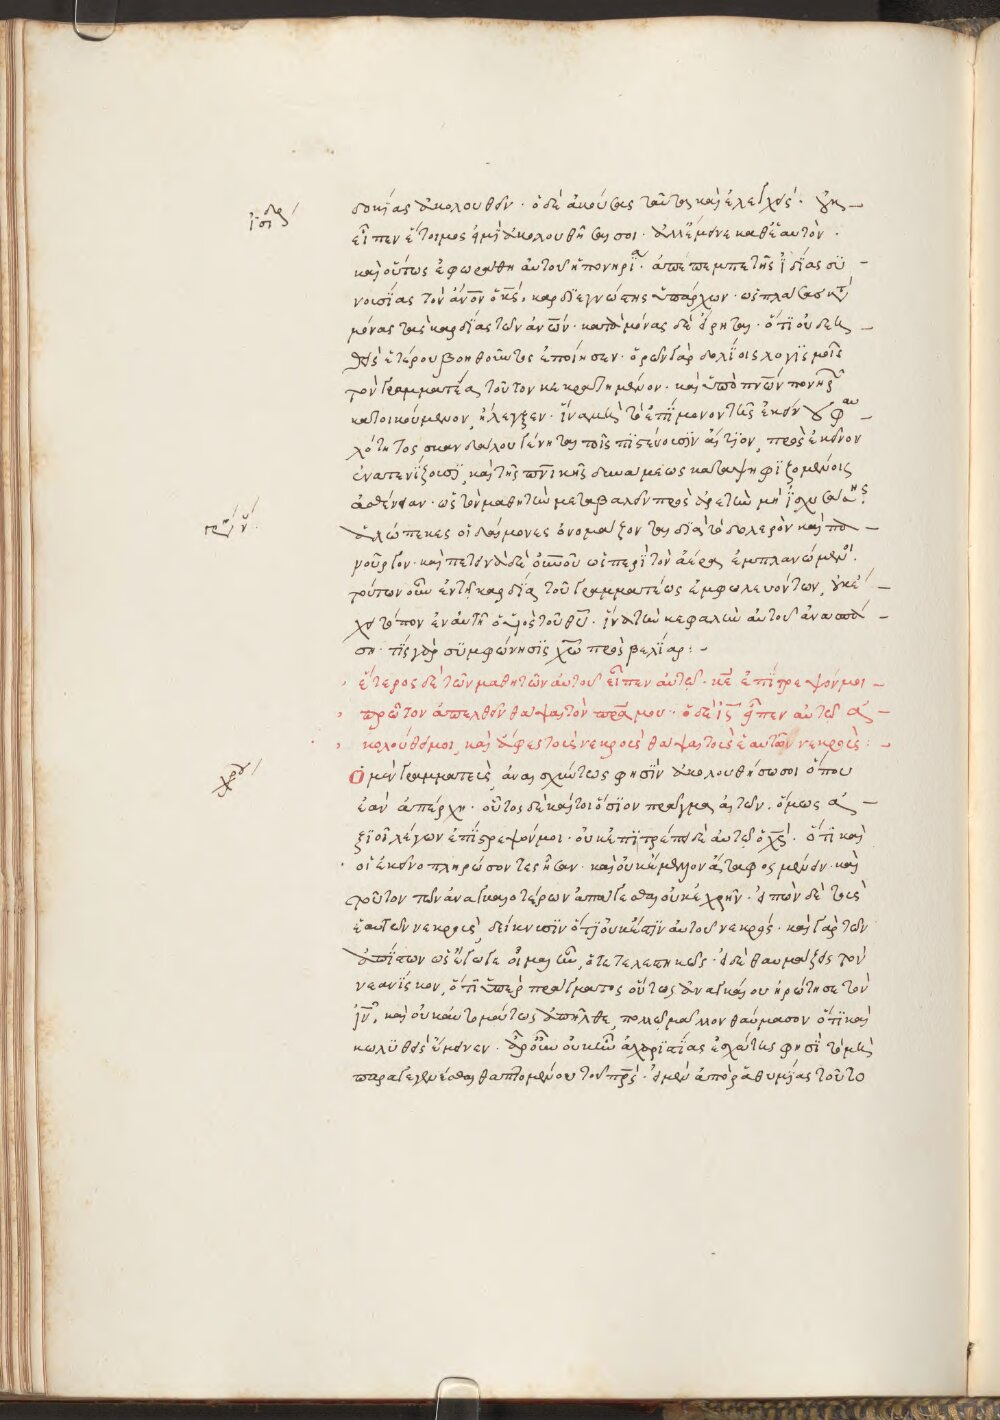 δοκίας ἀκολουθεῖν· ὁ δὲ ἀκούσας ταῦτα καὶ ἐλεγχθεὶς· οὐκ
εἶπεν ἕτοιμος εἰμὶ ἀκολουθῆσαι σοι· ἀλλ' ἔμεινε καθ' ἑαυτὸν·
καὶ οὕτως ἐφωράθη αὐτοῦ ἡ πονηρία· ἀπέπεμπε τῆς ἰδίας συ
νουσίας τὸν ἄνον ὁ κς, καρδιογνώστης ὑπάρχων· ὡς πλάσας
μόνας τὰς καρδίας τῶν ἀνων· καταμόνας δὲ εἴρηται· ὅτι οὐδεὶς
ἑτέρου βοηθοῦντος ἐποίησεν· ὁρῶν γὰρ δολίοις λογισμοῖς
τὸν γραμματέα τοῦτον κεκρατημένον· καὶ ὑπὸ πνων πονηρ
κατοικούμενον, ἤλεγξεν· ἵνα μὴ τὸ ἐπίμονον τῆς ἐκείνου φαυ
λότητος, σκανδάλου γένηται τοῖς πιστεύουσιν αἴτιον, πρὸς ἐκεῖνον
ἐνατενίζουσι, καὶ τῆς πνικῆς δυνάμεως καταψηφιζομένοις
ἀσθένειαν· ὡς τὸν μαθητὴν μεταβαλεῖν πρὸς ἀρετὴν μὴ ἰσχυσάσης
ἀλώπεκες οἱ δαίμονες ὀνομάζονται διὰ τὸ δολερὸν καὶ πα
νοῦργον· καὶ πετεινὰ δὲ ὁμοῦ ὡς περὶ τὸν ἀέρα ἐμπλανώμενοι·
τούτων οὖν ἐν τῇ καρδίᾳ τοῦ γραμματέως ἐμφωλευόντων, οὐκ ἔ
χει τόπον ἐν αὐτῇ ὁ υἱὸς τοῦ θυ· ἵνα τὴν κεφαλὴν αὐτοῦ ἀναπαύ
ση· τίς γὰρ συμφώνησις χω πρὸς βελίαρ:
ἕτερος δὲ τῶν μαθητῶν αὐτοῦ εἶπεν αὐτῷ· κε ἐπίτρεψόν μοι
πρῶτον ἀπελθεῖν θάψαι τὸν πρα μου· ὁ δὲ ις εἶπεν αὐτῷ ἀ
κολούθει μοι, καὶ ἄφες τοὺς νεκροὺς θάψαι τοὺς ἑαυτῶν νεκρούς:
Ὁ μὲν γραμματεὺς, ἀναισχύντως φησὶν ἀκολουθήσω σοι ὅπου
ἐὰν ἀπέρχη· οὗτος δὲ καίτοι ὅσιον πρᾶγμα αἰτῶν· ὅμως ἀ
ξιοῖ λέγων ἐπίτρεψόν μοι· οὐκ ἐπιτρέπει δὲ αὐτῷ ὁ χς· ὅτι καὶ
οἱ ἐκεῖνο πληρώσοντες ἦσαν· καὶ οὐκ ἔμελλον ἄταφος μένειν· καὶ
τοῦτον τῶν ἀναγκαιοτέρων ἀπάγεσθαι οὐκ ἐχρῆν· εἰπὼν δὲ τοὺς
ἑαυτῶν νεκροὺς, δείκνυσιν ὅτι οὐκ ἔστιν αὐτοῦ νεκρός· καὶ γὰρ τῶν
ἀπίστων ὡς ἔγωγε οἶμαι ἦν, ὁ τετελευτηκώς· εἰ δὲ θαυμάζεις τὸν
νεανίσκον, ὅτι ὑπὲρ πράγματος οὕτως ἀναγκαίου ἠρώτησε τὸν
ιν, καὶ οὐκ αὐτομάτως ἀπῆλθε, πολλῷ μᾶλλον θαύμασον ὅτι καὶ
κωλυθεὶς ἔμεινεν· ἆρ' οὖν οὐκ ἦν ἀχαριστίας ἐσχάτης φησὶ τὸ μὴ
παραγενέσθαι θαπτομένου τοῦ πρς· εἰ μὲν ἀπὸ ῥαθυμίας τοῦτο